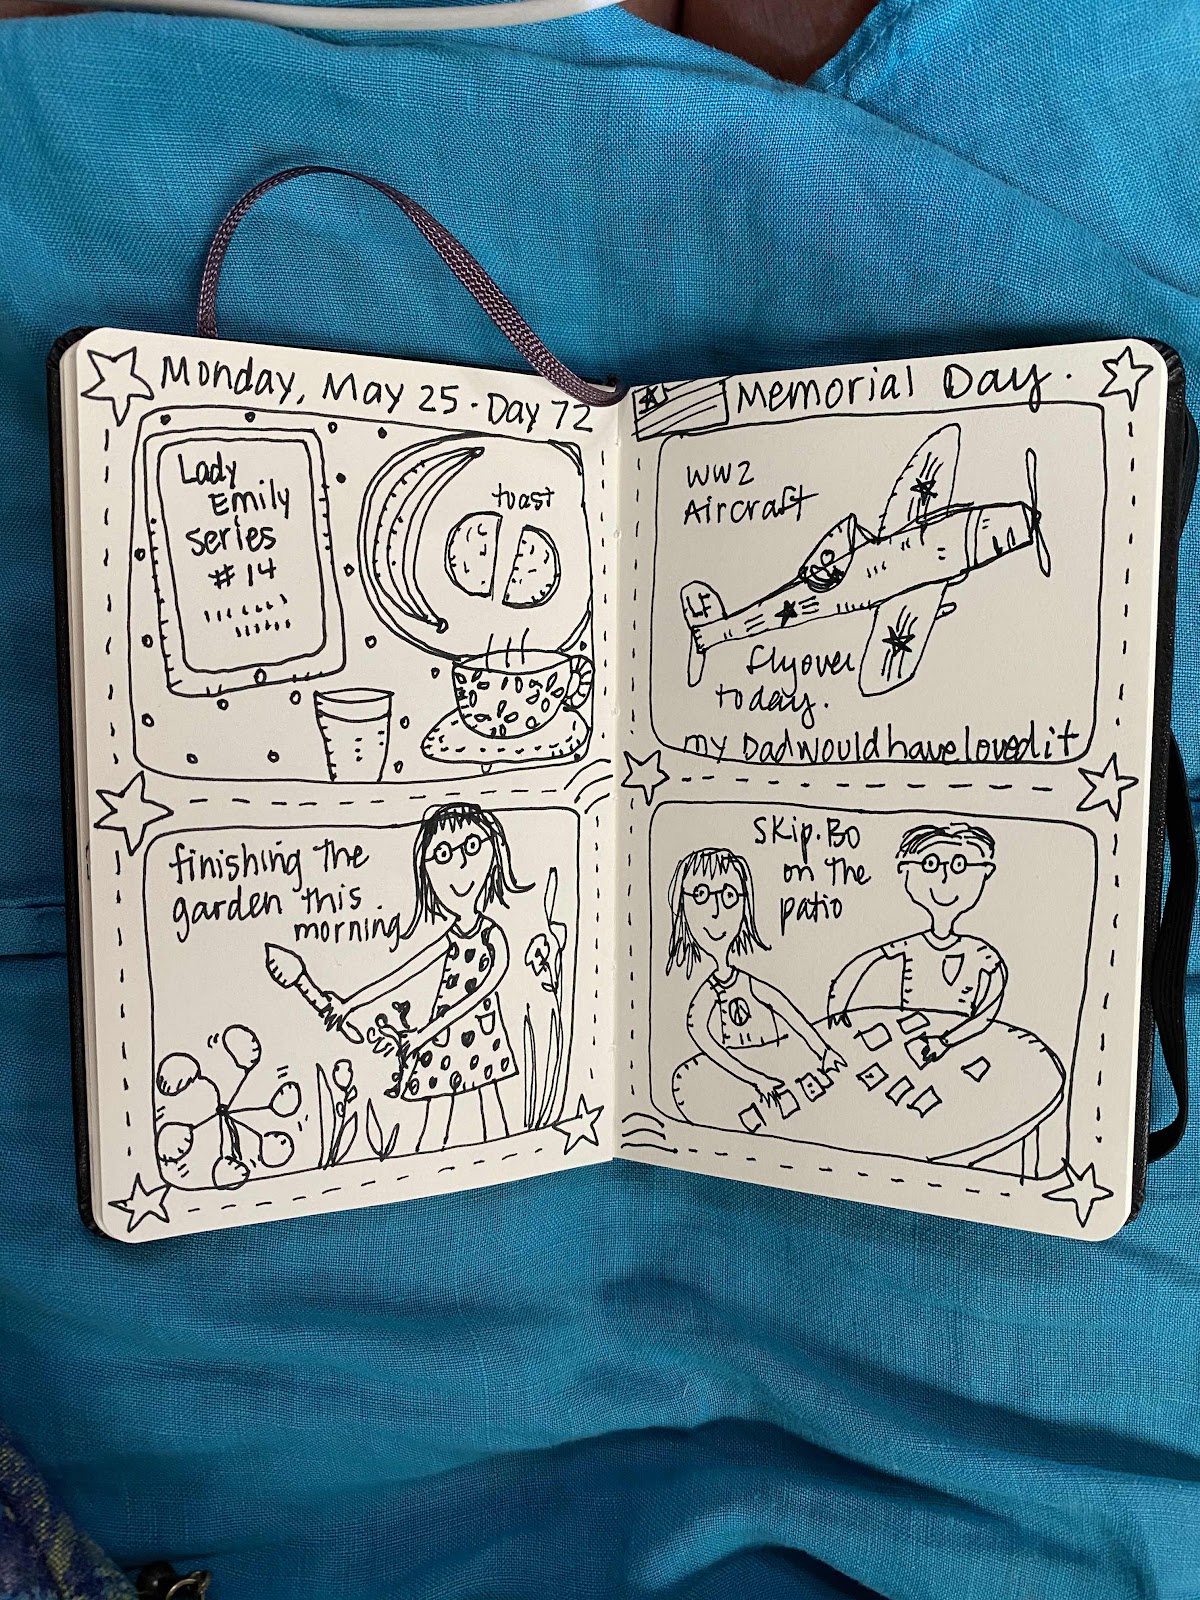 Monday, May 25 · Day 72
Lady
Emily
Series
#14
toast
finishing the
garden this
morning
Memorial Day.
WW2
Aircraft
LF
flyover
today.
my Dad would have loved it
Skip·Bo
on the
patio